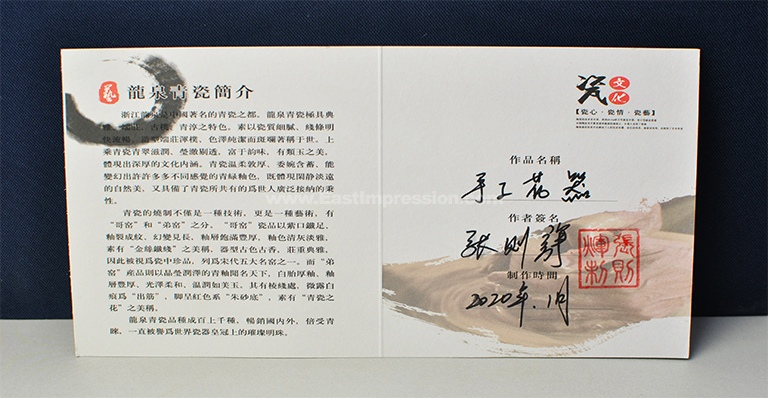 藝 龍泉青瓷簡介
浙江龍泉是中國著名的青瓷之都。龍泉青瓷極具典
雅、端莊、古樸、青淳之特色。素以瓷質細膩、綫條明
快流暢、造型端莊渾樸、色澤純潔而斑斕著稱于世。上
乘瓷青瓷青翠滋潤、瑩澈剔透，富于韵味，有類玉之美、
體現出深厚的文化内涵。青瓷温柔敦厚、委婉含蓄，能
變幻出許許多多不同感覺的青緑釉色，既體現閑静淡遠
的自然美，又具備了青瓷所共有的爲世人廣泛接納的秉
性。
青瓷的燒制不僅是一種技術，更是一種藝術，有
“哥窑”和“弟窑”之分。“哥窑”瓷品以紫口鐵足、
釉裂成紋、幻變見長，釉層飽滿豐厚，釉色清灰淡雅，
素有“金絲鐵綫”之美稱。器型古色古香、莊重典雅，
因此被視爲瓷中珍品，列爲宋代五大名窑之一。而“弟
窑”産品則以晶瑩潤澤的青釉聞名天下，白胎厚釉、釉
層豐厚、光澤柔和、温潤如美玉。具有棱綫處，微露白
痕爲“出筋”，脚呈紅色系“朱砂底”，素有“青瓷之
花”之美稱。
龍泉青瓷品種成百上千種，暢銷國内外，倍受青
睞，一直被譽爲世界瓷器皇冠上的璀璨明珠。
www.EastImpression.com
瓷 文化
【瓷心·瓷情·瓷藝】
作品名稱
手工花器
作者簽名
張則輝
張則
輝制
制作時間
2020年.1月